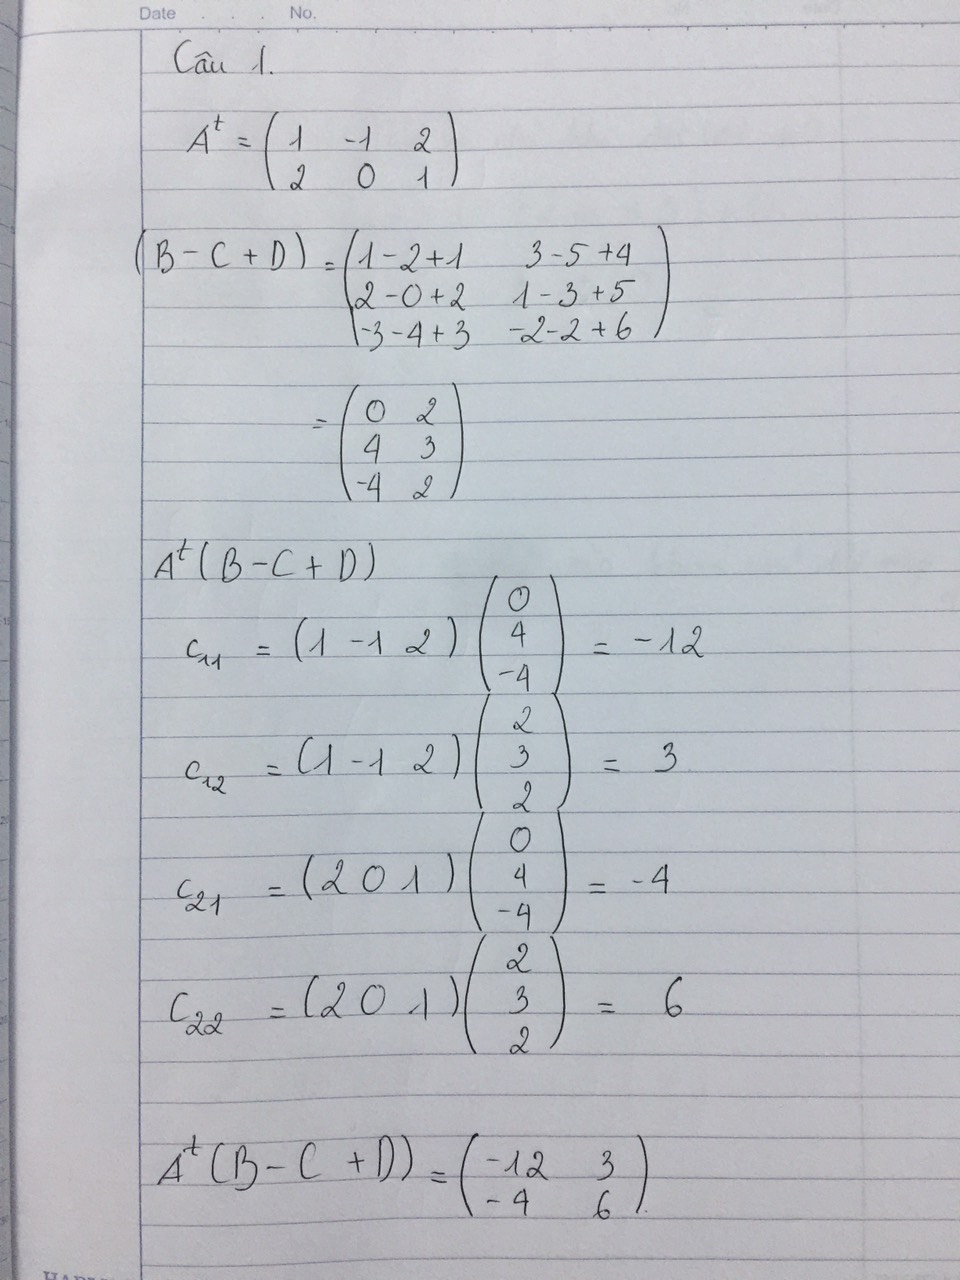 Date . . . No.
Câu 1.
A^t = ( 1 -1 2
2 0 1 )
(B - C + D) = ( 1-2+1 3-5+4
2-0+2 1-3+5
-3-4+3 -2-2+6 )
= ( 0 2
4 3
-4 2 )
A^t (B - C + D)
c₁₁ = (1 -1 2) ( 0 4 -4 ) = -12
c₁₂ = (1 -1 2) ( 2 3 2 ) = 3
c₂₁ = (2 0 1) ( 0 4 -4 ) = -4
c₂₂ = (2 0 1) ( 2 3 2 ) = 6
A^t (B - C + D) = ( -12 3
-4 6 ).